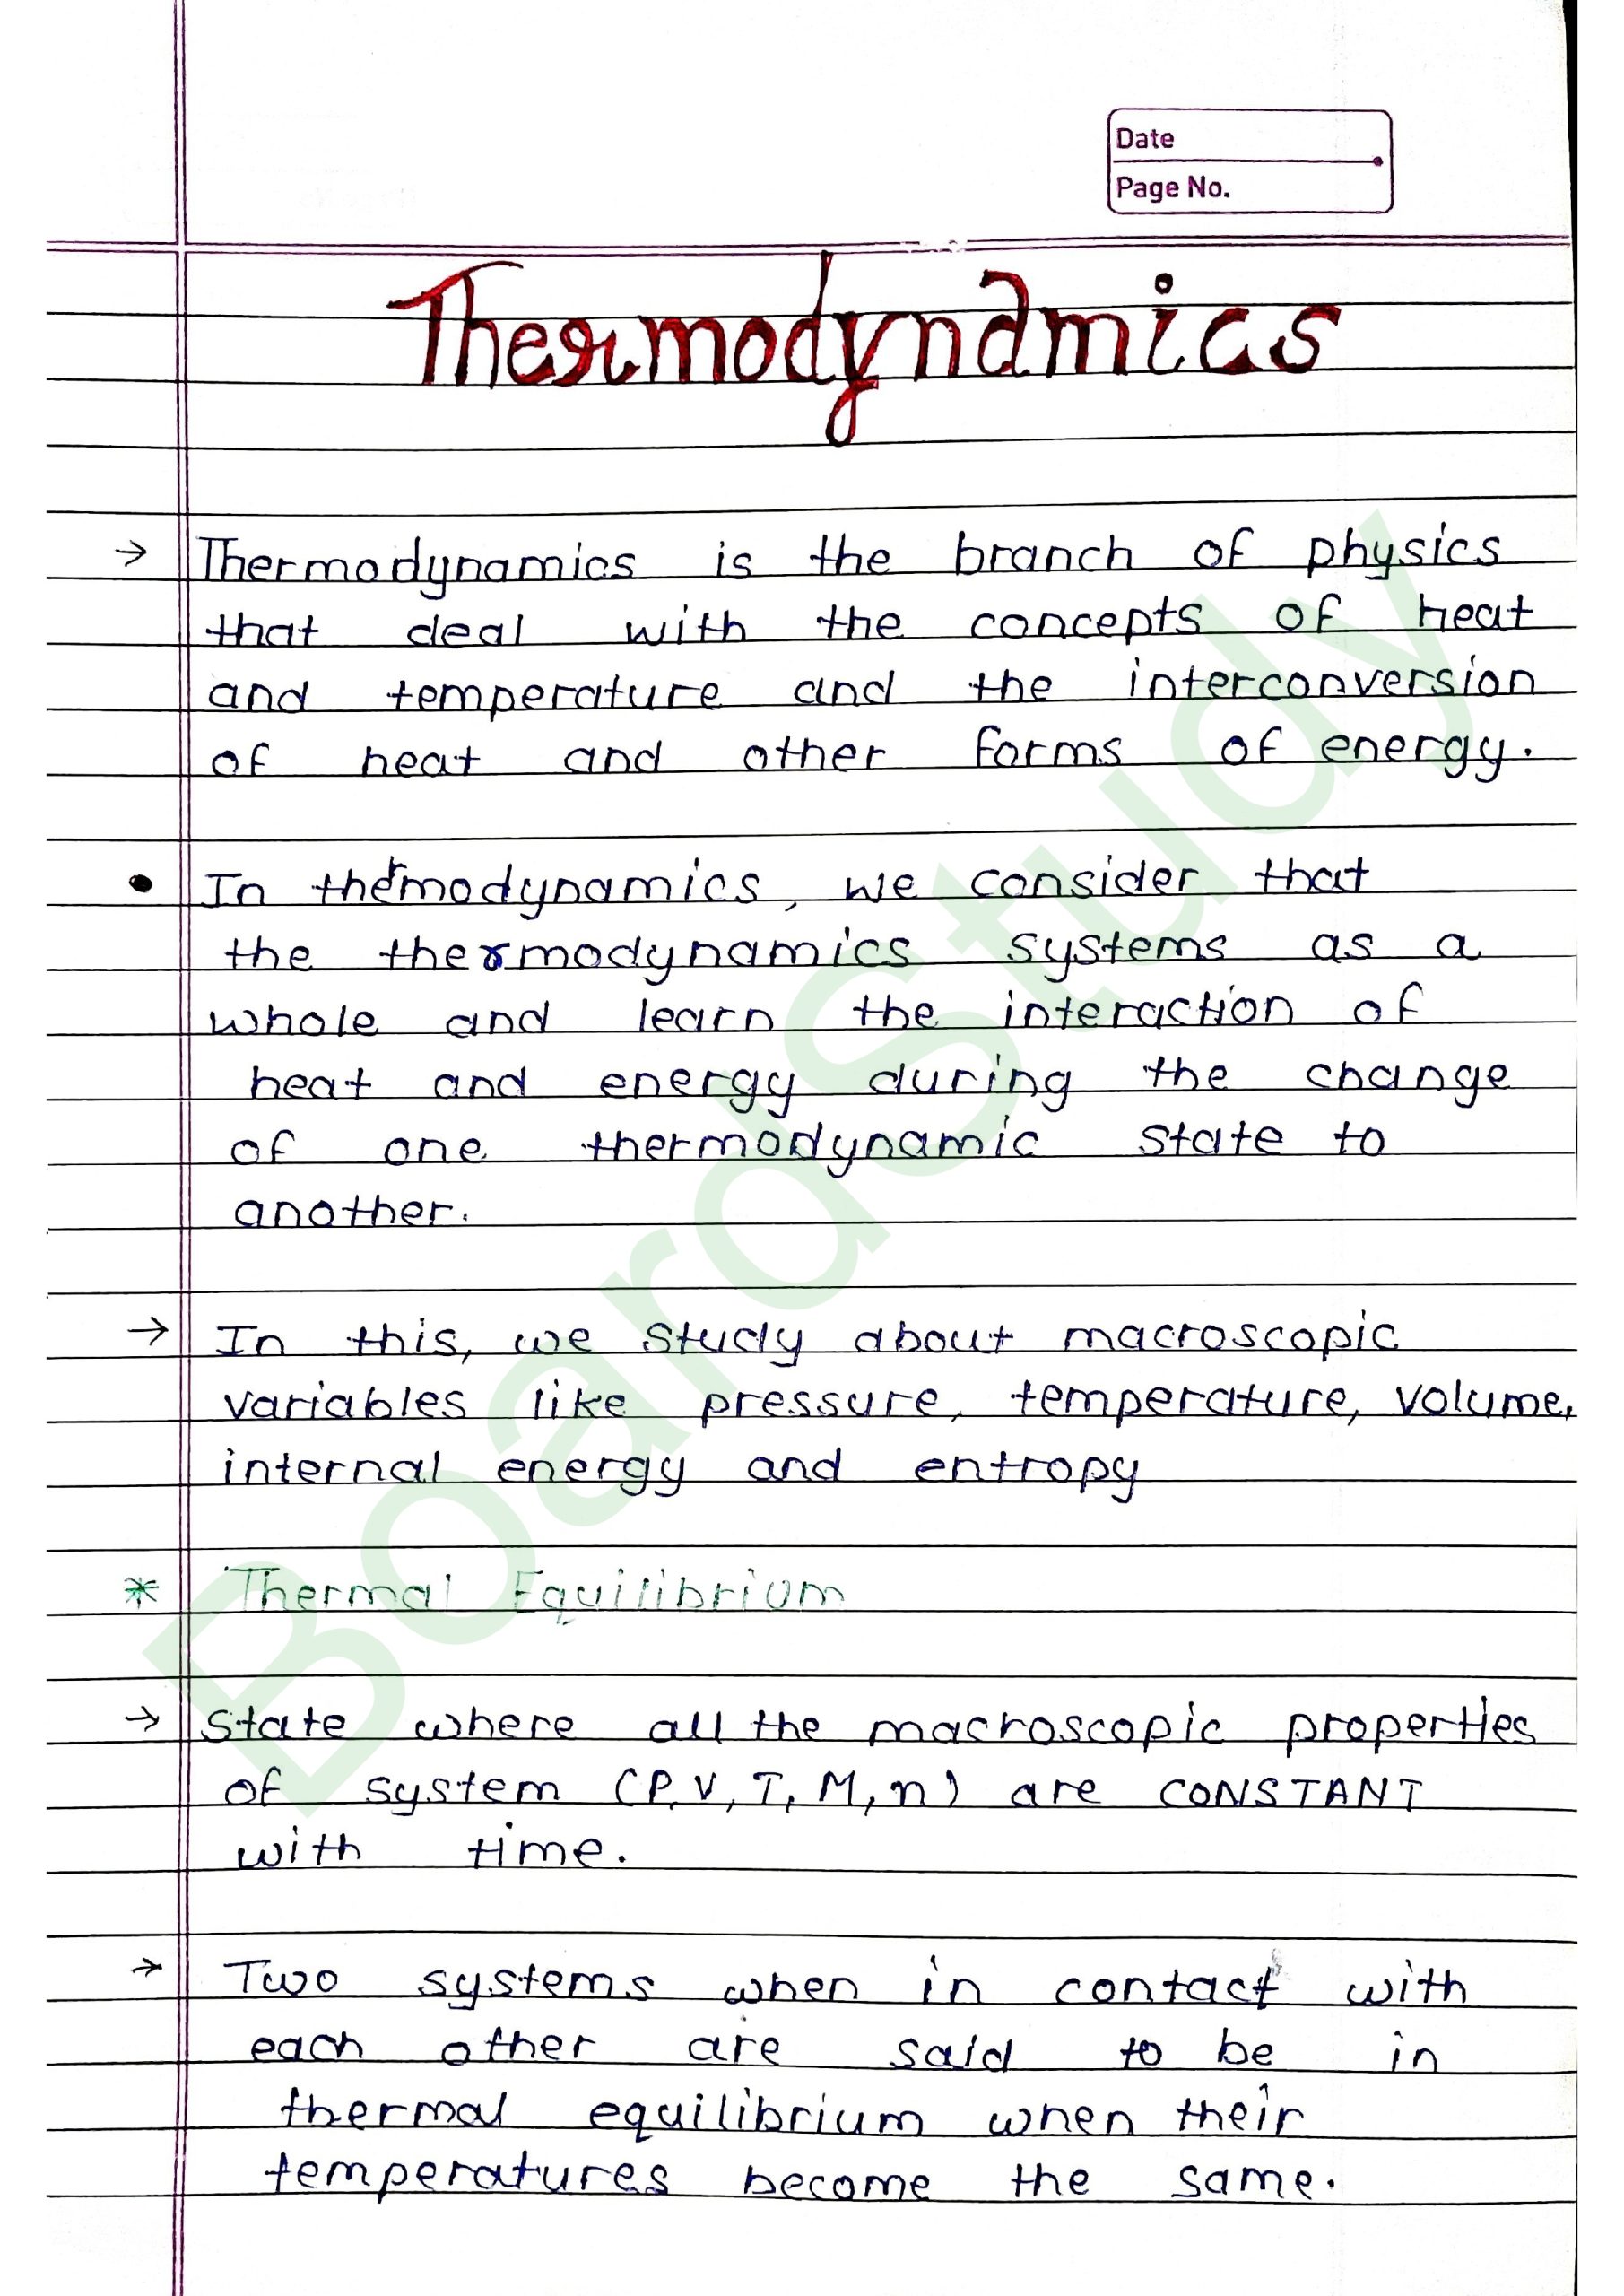 Date
Page No.
Thermodynamics
→ Thermodynamics is the branch of physics
that deal with the concepts of heat
and temperature and the interconversion
of heat and other forms of energy.
• In thermodynamics, we consider that
the thermodynamics systems as a
whole and learn the interaction of
heat and energy during the change
of one thermodynamic state to
another.
→ In this, we study about macroscopic
variables like pressure, temperature, volume,
internal energy and entropy
* Thermal Equilibrium
→ State where all the macroscopic properties
of system (P, V, T, M, n) are CONSTANT
with time.
→ Two systems when in contact with
each other are said to be in
thermal equilibrium when their
temperatures become the same.
BoardStudy